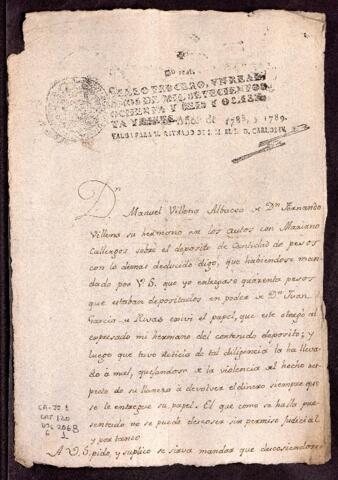 Un real.
SELLO TERCERO, UN REAL,
AÑOS DE MIL SETECIENTOS
OCHENTA Y SEIS Y OCHEN-
TA Y SIETE.
Años de 1788, y 1789.
VALGA PARA EL REYNADO DE S. M. EL S. D. CARLOS IV.
Dn Manuel Villena Albacea de Dn Fernando
Villena su hermano en los autos con Mariano
Gallegos sobre el deposito de Cantidad de pesos
con lo demas deducido digo, que habiendose man-
dado por V. S. que yo entregase quarenta pesos
que estaban depositados en poder de Dn Juan
Garcia de Rivas exivi el papel, que este otorgó al
expresado mi hermano del contenido deposito; y
luego que tuvo noticia de tal diligencia la ha lleva-
do á mal, quejandose de la violencia del hecho res-
pecto de su llaneza á devolver el dinero siempre que
se le entregue su papel. El que como se halla pre-
sentado no se puede descoser sin permiso Judicial
y por tanto
A V. S. pido, y suplico se sirva mandar que descosiendose
CA-JO 1
CAJ 120
DOC 2068
F 1